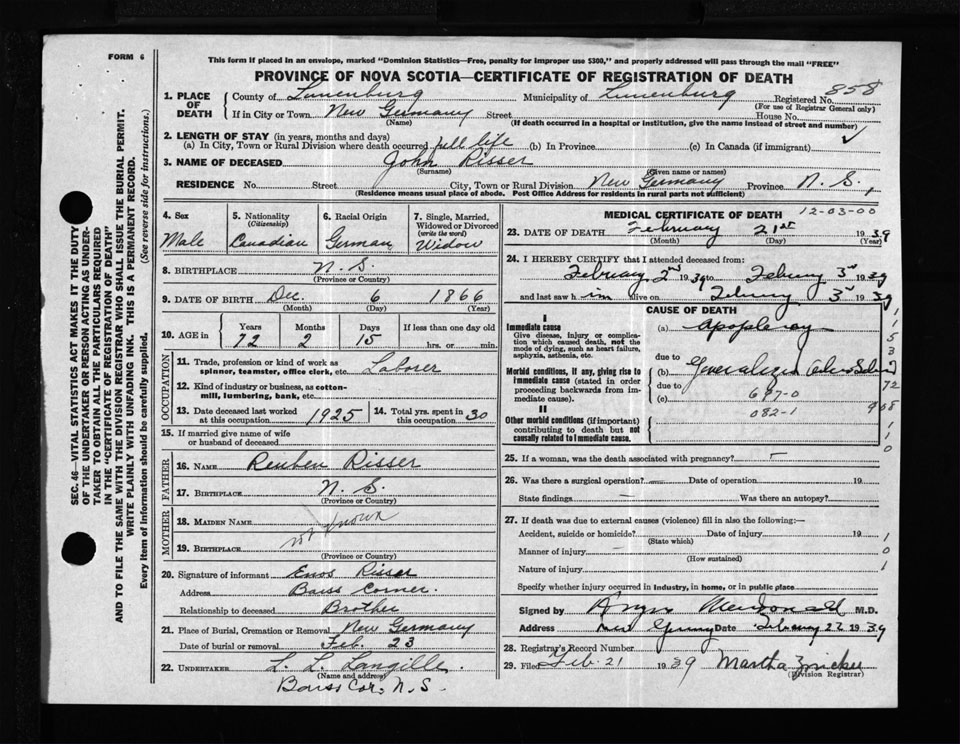 FORM 6
This form if placed in an envelope, marked "Dominion Statistics—Free, penalty for improper use $300," and properly addressed will pass through the mail "FREE"
PROVINCE OF NOVA SCOTIA—CERTIFICATE OF REGISTRATION OF DEATH
SEC. 46—VITAL STATISTICS ACT MAKES IT THE DUTY
OF THE UNDERTAKER OR PERSON ACTING AS UNDER-
TAKER TO OBTAIN ALL THE PARTICULARS REQUIRED
IN THE "CERTIFICATE OF REGISTRATION OF DEATH"
AND TO FILE THE SAME WITH THE DIVISION REGISTRAR WHO SHALL ISSUE THE BURIAL PERMIT.
WRITE PLAINLY WITH UNFADING INK. THIS IS A PERMANENT RECORD.
Every item of information should be carefully supplied. (See reverse side for instructions.)
1. PLACE OF DEATH
County of Lunenburg Municipality of Lunenburg Registered No. 858
(For use of Registrar General only)
If in City or Town New Germany Street House No.
(Name) (If death occurred in a hospital or institution, give the name instead of street and number)
2. LENGTH OF STAY (in years, months and days)
(a) In City, Town or Rural Division where death occurred full life (b) In Province (c) In Canada (if immigrant) ✓
3. NAME OF DECEASED John Risser
(Surname) (Given name or names)
RESIDENCE No. Street City, Town or Rural Division New Germany Province N. S.
(Residence means usual place of abode. Post Office Address for residents in rural parts not sufficient)
4. Sex
Male
5. Nationality
(Citizenship)
Canadian
6. Racial Origin
German
7. Single, Married,
Widowed or Divorced
(write the word)
Widow
8. BIRTHPLACE N. S.
(Province or Country)
9. DATE OF BIRTH Dec. 6 1866
(Month) (Day) (Year)
10. AGE in
Years Months Days If less than one day
72 2 15 hrs. or min.
OCCUPATION
11. Trade, profession or kind of work as
spinner, teamster, office clerk, etc. Laborer
12. Kind of industry or business, as cotton-
mill, lumbering, bank, etc.
13. Date deceased last worked
at this occupation 1925
14. Total yrs. spent in
this occupation 30
15. If married give name of wife
or husband of deceased
FATHER
16. NAME Reuben Risser
17. BIRTHPLACE N. S.
(Province or Country)
MOTHER
18. MAIDEN NAME
not known
19. BIRTHPLACE
(Province or Country)
20. Signature of informant Enos Risser
Address Barss Corner.
Relationship to deceased Brother
21. Place of Burial, Cremation or Removal New Germany
Date of burial or removal Feb. 23
22. UNDERTAKER L. L. Langille.
(Name and address)
Barss Cor, N. S.
MEDICAL CERTIFICATE OF DEATH 12-03-00
23. DATE OF DEATH February 21st 1939
(Month) (Day) (Year)
24. I HEREBY CERTIFY that I attended deceased from:
February 2nd 1939 to February 3rd 1939
and last saw him alive on February 3rd 1939
I
Immediate cause
Give disease, injury or complica-
tion which caused death, not the
mode of dying, such as heart failure,
asphyxia, asthenia, etc.
Morbid conditions, if any, giving rise to
immediate cause (stated in order
proceeding backwards from im-
mediate cause).
II
Other morbid conditions (if important)
contributing to death but not
causally related to immediate cause.
CAUSE OF DEATH
(a) Apoplexy
due to
(b) Generalized
due to
(c) 697-0
082-1
1
1
5
3
2
72
968
1
1
0
25. If a woman, was the death associated with pregnancy? —
26. Was there a surgical operation? — Date of operation 19
State findings — Was there an autopsy?
27. If death was due to external causes (violence) fill in also the following:—
Accident, suicide or homicide? Date of injury 19
(State which)
Manner of injury —
(How sustained)
Nature of injury
1
0
1
Specify whether injury occurred in industry, in home, or in public place
Signed by M.D.
Address New Germany Date February 22 1939
28. Registrar's Record Number
29. Filed Feb. 21 1939 Martha Zwicker
(Division Registrar)